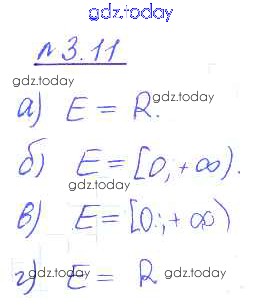 gdz.today
№3.11
gdz.today
а) E = R.
gdz.today
б) E = [0; +∞).
gdz.today
в) E = [0; +∞)
г) E = R
gdz.today
gdz.today